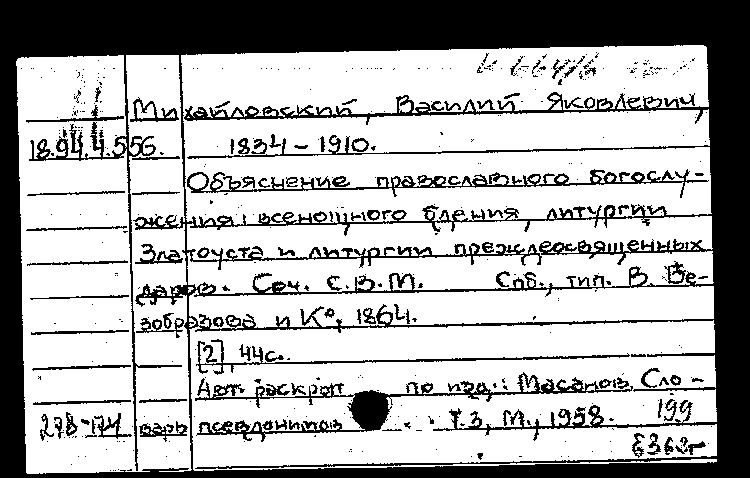 Михайловский, Василий Яковлевич,
18.94.4.556. 1834-1910.
Объяснение православного богослу-
жения: всенощного бдения, литургии
Златоуста и литургии преждеосвященных
даров. Соч. С.В.М. Спб., тип. В. Бе-
зобразова и К°, 1864.
[2], 44с.
Авт. раскрыт по изд.: Масанов. Сло-
278-174 варь псевдонимов . . Т.3, М., 1958. 199